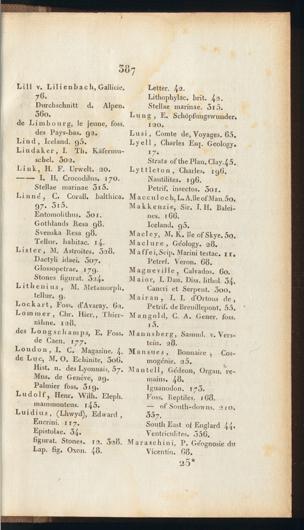 387
Lill v. Lilienbach, Gallicic.
76.
Durchschnitt d. Alpen.
360.
de Limbourg, le jeune, foss.
des Pays-bas. 92.
Lind, Iceland. 95.
Lindaker, I. Th. Käfermu-
schel. 302.
Link, H. F. Urwelt. 20.
—— I. H. Crocodilus. 170.
Stellae marinae 315.
Linné, C. Corall. balthica.
97. 315.
Entomolithus. 301.
Gothlands Resa 98.
Svenska Resa 98.
Tellur. habitac. 14.
Lister, M. Astroites. 328.
Dactyli idaei. 307.
Glossopetrae. 179.
Stones figurat. 324.
Lithenius, M. Metamorph.
tellur. 9.
Lockart, Foss. d'Avaray. 62.
Lommer, Chr. Hier., Thier-
zähne. 128.
des Longschamps, E. Foss.
de Caen. 177.
Loudon, I. C. Magazine. 4.
de Luc, M. O. Echinite, 306.
Hist. n. des Lyonnais, 57.
Mus. de Genève. 29.
Palmier foss. 319.
Ludolf, Henr. Wilh. Eleph.
mammonteus. 145.
Luidius, (Lhwyd), Edward,
Encrini. 117.
Epistolae. 34.
figurat. Stones. 12. 328.
Lap. fig. Oxon. 48.
Letter. 42.
Lithophylac. brit. 42.
Stellae marinae. 315.
Lung, E. Schöpfungswunder.
120.
Lusi, Comte de, Voyages. 65.
Lyell, Charles Esq. Geology.
17.
Strata of the Plan, Clay. 45.
Lyttleton, Charles. 196.
Nautilites. 196.
Petrif. insectos. 301.
Macculoch, L. A. Ile of Man. 50.
Makkenzie, Sir. I. H. Balei-
nes. 166.
Iceland. 95.
Macley, M. K. Ile of Skye. 50.
Maclure, Géologie. 28.
Maffei, Scip. Marini testac. 11.
Petref. Veron. 68.
Magneville, Calvados. 60.
Maior, I. Dan. Diss. lithol. 34.
Cancri et Serpent. 300,
Mairan, I. I. d'Ortous de,
Petrif. de Breuillepont. 55.
Mangold, C. A. Gener. foss.
15.
Mannsberg, Samml. v. Vers-
tein. 28.
Mansues, Bonnaire, Cos-
mogénie. 25.
Mantell, Gédeon, Organ. re-
mains. 48.
Iguanodon, 173.
Foss. Reptiles. 168.
— of South-downs. 210.
357.
South East of England 44.
Ventriculites. 356.
Maraschini, P. Géognosie du
Vicentin. 68.
25*